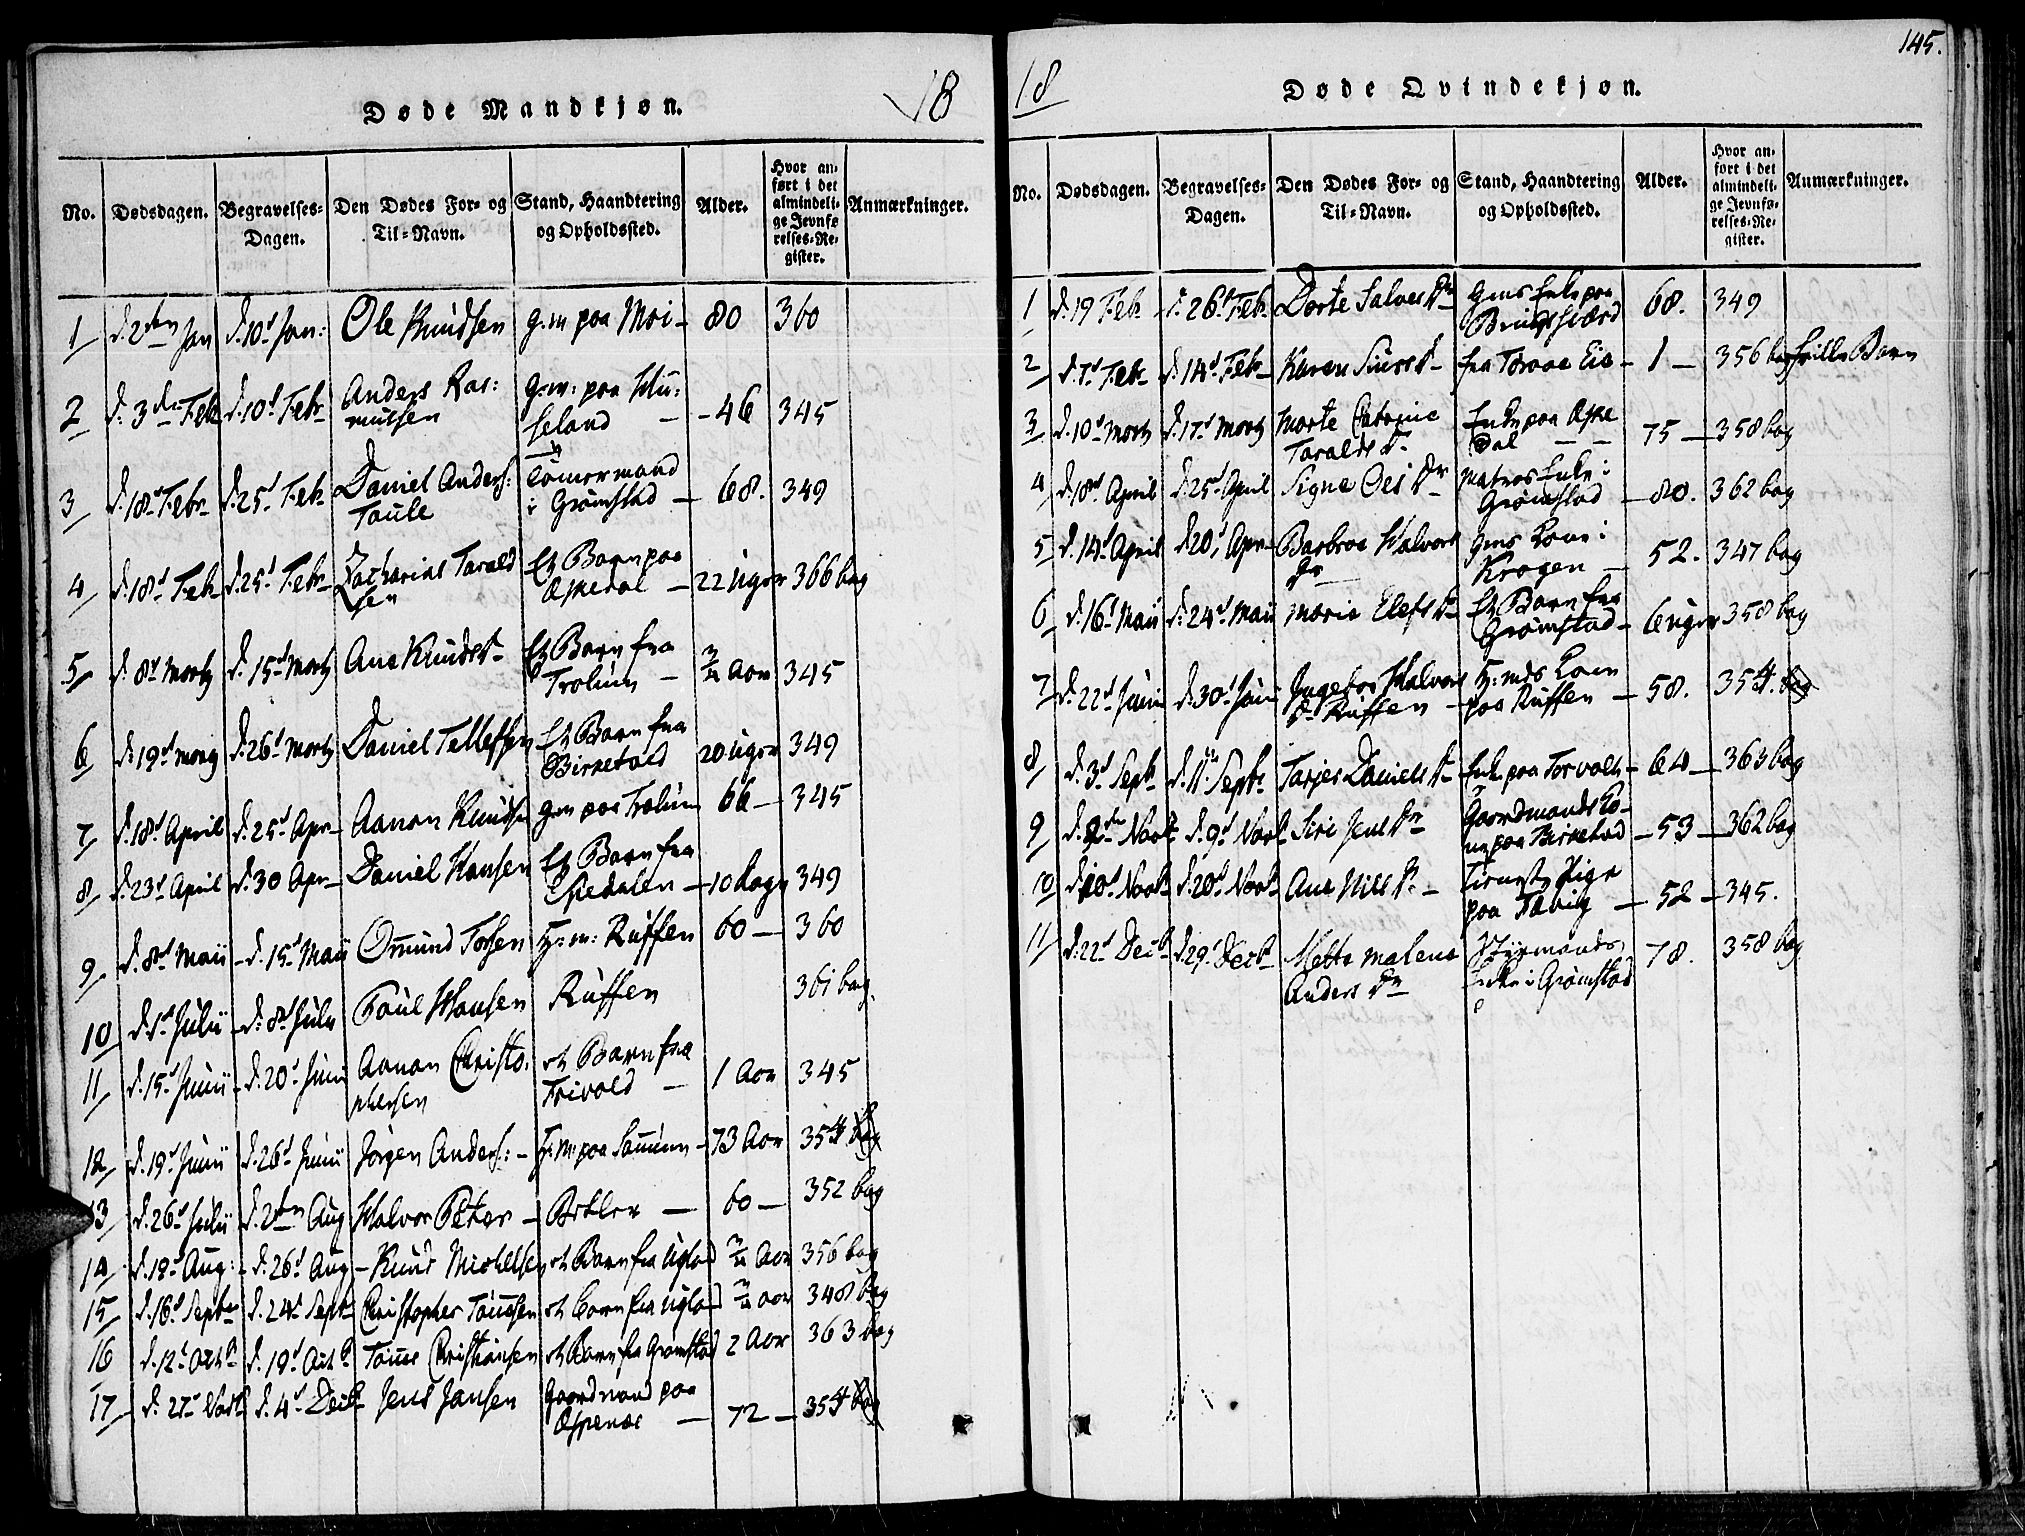 18
Døde Mandkjøn.
No. Dødsdagen. Begravelses-Dagen. Den Dødes For- og Til-Navn. Stand, Haandtering og Opholdssted. Alder. Hvor anført i det almindelige Jevnførelses-Register. Anmærkninger.
1 d. 2den Jan d. 10d Jan: Ole Knudsen g:m paa Moi 80 360
2 d. 3den Feb d. 10d Febr Anders Rasmussen g:m: paa 46 345
3 d. 18d Febr d. 25d Feb Daniel Anders: Taule Tømermand i Grømstad 68. 349
4 d. 18d Feb d. 25d Febr Zacharias Taraldsen Et Barn paa Æskedal 22 Uger 366 bag
5 d. 8d Martz d. 15d Martz Ane Knudsd Et Barn fra Trolum 3/4 Aar 345
6 d. 19d Martz d. 26d Martz Daniel Tellefsen Et Barn fra Birketved 20 Uger 349
7 d. 18d April d. 25d Apr Aanon Knudsen gm paa Trolum 66 345
8 d. 23d April d. 30 Apr Daniel Hansen Et Barn fra Eskedalen 10 dage 349
9 d. 8d Maii d. 15d Maii Omund Torsen H:m: Ruffen 60 360
10 d. 1d Julii d. 8d Julii Paul Hansen Ruffen 361 bag.
11 d. 15d Junii d. 20d Juni Aanon Christophersen et Barn fra Trivold 1 Aar 345
12 d. 19d Junii d. 26d Junii Jørgen Anders: H:M: paa 73 Aar 354
13 d. 26d Julii d. 2den Aug Halvor Peter Betler 60 352 bag
14 d. 19d Aug: d. 26d Aug Knud Michelsen et Barn fra Uglad 3/4 Aar 356 bag
15 d. 16d Septbr d. 24d Sept Christopher et Barn fra Uglad 3/4 aar 348 bag
16 d. 12d Octb d. 19d Octb Christiansen et Barn fra Grømstad 2 Aar 363 bag
17 d. 27d Novb d. 4d Decb Jens Jansen Gaardmand paa Æspenæs 72 354
145.
18
Døde Qvindekjøn.
No. Dødsdagen. Begravelses-Dagen. Den Dødes For- og Til-Navn. Stand, Haandtering og Opholdssted. Alder. Hvor anført i det almindelige Jevnførelses-Register. Anmærkninger.
1 d. 19 Feb d. 26d Feb Dorte Salves Dr gms Enke paa 68. 349
2 d. 7d Feb d. 14d Feb Karen fra Torvae Eie 1 356 bag Barn
3 d. 10d Martz d. 17d Martz Marte Catrine Taralds D. Enke paa Æskedal 75 358 bag
4 d. 18d April d. 25d April Signe Oes Dr Matros Enke i Grømstad 80. 362 bag
5 d. 14d April d. 20d Apr Barbroe Halvors Dr gms Kone i Krogen 52. 347 bag
6 d. 16d Maii d. 24d Maii Marie Elefs Dr Et Barn fra Grømstad 6 uger 358 bag
7 d. 22d Juni d. 30d Juni Ingebor Halvors Dr Ruffen H:mds Kone paa Ruffen 58. 354.
8 d. 3d Septb d. 11te Septb Tarjer Daniels Dr Enke paa 64 363 bag
9 d. 2den Novb d. 9d Novb Siri Jens Dr Gaardmands Kone paa Birketved 53 362 bag
10 d. 10d Novb d. 20d Novb Ane Nils Dr Tieneste Pige paa 52 345.
11 d. 22d Decb d. 29d Decb Mette Malene Anders Dr Styrmands Enke i Grømstad 78. 358 bag